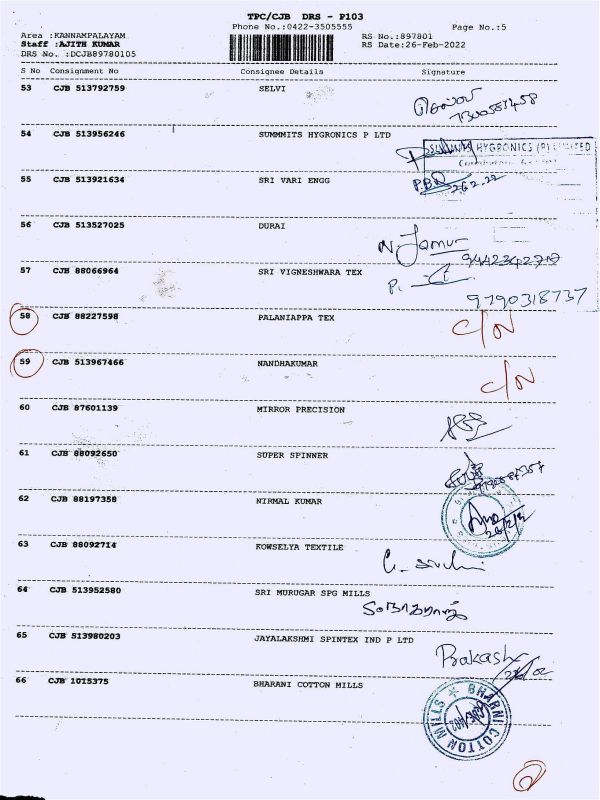 TPC/CJB DRS - P103
Phone No.:0422-3505555 Page No.:5
Area :KANNAMPALAYAM RS No.:897801
Staff :AJITH KUMAR RS Date:26-Feb-2022
DRS No. :DCJB89780105
S No Consignment No Consignee Details Signature
53 CJB 513792759 SELVI
54 CJB 513956246 SUMMMITS HYGRONICS P LTD
HYGRONICS (P) LIMITED
55 CJB 513921634 SRI VARI ENGG
26.2.22
56 CJB 513527025 DURAI
57 CJB 88066964 SRI VIGNESHWARA TEX
9790318737
58 CJB 88227598 PALANIAPPA TEX C/N
59 CJB 513967466 NANDHAKUMAR C/N
60 CJB 87601139 MIRROR PRECISION
61 CJB 88092650 SUPER SPINNER
62 CJB 88197358 NIRMAL KUMAR
63 CJB 88092714 KOWSELYA TEXTILE
64 CJB 513952580 SRI MURUGAR SPG MILLS
65 CJB 513980203 JAYALAKSHMI SPINTEX IND P LTD
Prakash
66 CJB 1015375 BHARANI COTTON MILLS
BHARNI COTTON MILLS